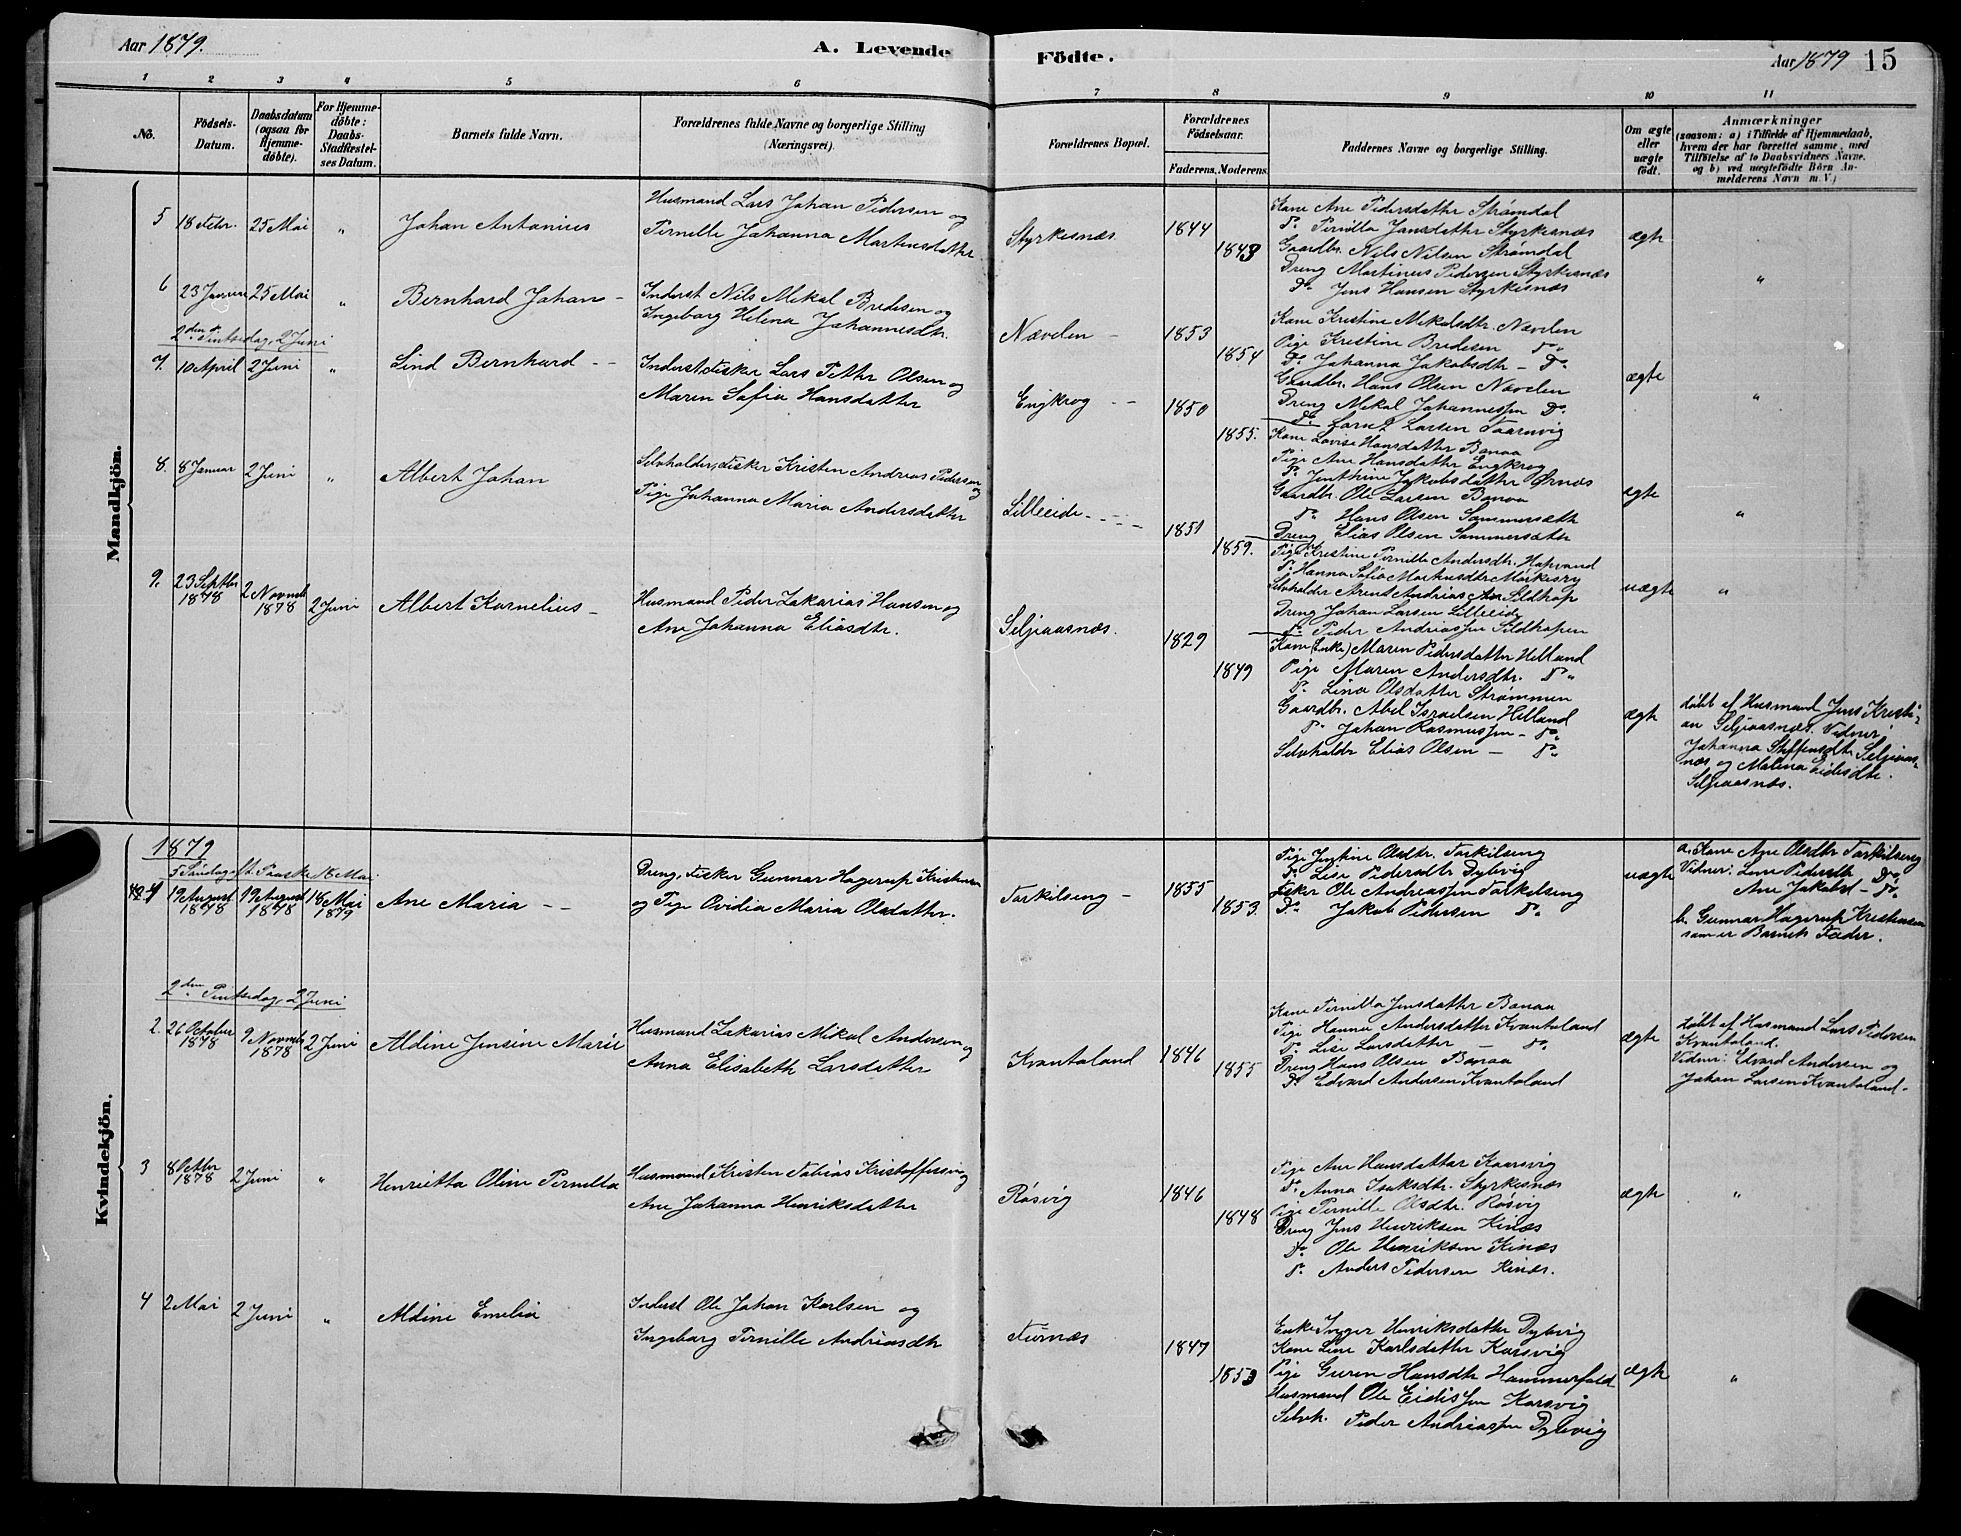 Aar 1879.
A. Levende
Födte.
Aar 1879
15
1
2
3
4
5
6
7
8
9
10
11
No.
Födsels-
Datum.
Daabsdatum
(ogsaa for
Hjemme-
døbte).
For Hjemme-
døbte:
Daabs-
Stadfæstel-
ses Datum.
Barnets fulde Navn.
Forældrenes fulde Navne og borgerlige Stilling
(Næringsvei).
Forældrenes Bopæl.
Forældrenes
Födselsaar.
Faderens. Moderens.
Faddernes Navne og borgerlige Stilling.
Om ægte
eller
uægte
født.
Anmærkninger
(saasom: a) i Tilfælde af Hjemmedaab,
hvem der har forrettet samme, med
Tilføielse af to Daabsvidners Navne.
og b) ved uægtefödte Börn An-
melderens Navn m. V.)
Mandkjön.
5
18 Febr.
25 Mai
"
Johan Antonius
Husmand Lars Johan Pedersen og
Pernille Johanna Martinsdatter
Styrkesnæs
1844
1843
Kone Ane Pedersdatter Strømdal
Do. Pernilla Jansdatter Styrkesnæs
Gaardbr. Nils Nilsen Strømdal
Dreng Martinus Pedersen Styrkesnæs
Do. Jens Hansen Styrkesnæs
ægte
"
6
23 Januar
25 Mai
"
Bernhard Johan -
Inderst Nils Mikal Bredesen og
Ingeborg Helena Johannesdtr.
Nævelen -
1853
1854
Kone Kristine Mikalsdtr. Nævelen
Pige Kristine Bredesen Do.
Do. Johanna Jakobsdtr - Do.
Gaardbr. Hans Olsen Nævelen
Dreng Mikal Johannessen Do.
ægte
"
2den Pintsedag, 2 Juni
7.
10 April
2 Juni
"
Lind Bernhard - -
Inderst, Fisker Lars Petter Olsen og
Maren Sofia Hansdatter
Engkrog - -
1850
1855.
Do. Larsen
Kone Lovise Hansdatter Bonaa
Pige Ane Hansdatter Engkrog
Do. Jakobsdatter Ørnes
Gaardbr. Ole Larsen Bonaa
Do. Hans Olsen Sommersæth
Dreng Elias Olsen Sommersæter
ægte
"
8.
8 Januar
2 Juni
"
Albert Johan
Selvholder, Fisker Kristen Andreas Pedersen og
Pige Johanna Maria Andersdatter
Lilleeide - - - -
1851
1859.
Pige Kristine Pernille Andersdtr. Hopvand
Do. Hanna Sofia Markusdtr Mørkesry
Selvholder Arent Andrias
Dreng Johan Larsen Lilleeide
Do. Peder Andriassen Sildhopen
uægte
"
9.
23 Septbr
1878
2 Novmb
1878
2 Juni
Albert Kornelius -
Husmand Peder Zakarias Hansen og
Ane Johanna Eliasdtr.
Seljeaasnæs.
1829
1849
Kone (Enke) Maren Pedersdatter Helland
Pige Maren Andersdtr. Do.
Do. Lina Olsdatter Strømmen
Gaardbr. Abel Israelsen Helland
Do. Johan Rasmussen - Do.
Selvholder Elias Olsen - Do.
ægte
døbt af Husmand Jens Kristi-
an Seljeaasnæs. Vidner:
Johanna Steffensdtr. Seljeaas-
næs og Malena Eidesdtr.
Seljeaasnæs.
Kvindekjön.
1879
5 Søndag eft. Paaske, 18 Mai
1
19 August
1878
19 August
1878
18 Mai
1879
Ane Maria - -
Dreng, Fisker Gunnar Hagerup Kristensen
og Pige Ovidia Maria Olsdatter.
Torkilseng -
1855
1853.
Pige Justine Olsdtr. Torkilseng
Do. Lise Pedersdtr Dybvig
Fisker Ole Andreassen Torkilseng
Do. Jakob Pedersen Do.
uægte
a. Kone Ane Olsdtr Torkilseng
Vidner: Lene Pedersdtr Do.
Ane Jakobsd - Do.
b. Gunnar Hagerup Kristensen
som er Barnets Fader.
2den Pintsedag, 2 Juni
2.
26 October
1878
9 Novmb
1878
2 Juni
Aldine Jensine Marie
Husmand Zakarias Mikal Andersen og
Anna Elisabeth Larsdatter
Kvantoland
1846
1855
Kone Pernilla Jensdatter Bonaa
Pige Hanna Andersdatter Kvantoland
Do. Lise Larsdatter - Do.
Dreng Hans Olsen Bonaa
Do. Edvard Andersen Kvantoland
ægte
døbt af Husmand Lars Pedersen
Kvantoland.
Vidner: Edvard Andersen og
Johan Larsen Kvantoland -
3
8 Octbr
1878
2 Juni
"
Henrietta Oline Pernilla
Husmand Kristen Tobias Kristoffersen og
Ane Johanna Henriksdatter
Røsvig
1846
1848
Pige Ane Hansdatter Kaarsvig
Do. Anna Isaksdtr. Styrkesnæs
Pige Pernille Olsdtr. Røsvig
Dreng Jens Henriksen Kinæs
Do. Ole Henriksen Kinæs
Do. Anders Pedersen Kinæs.
ægte
"
4
2 Mai
2 Juni
"
Aldine Emelia
Inderst Ole Johan Karlsen og
Ingeborg Pernille Andriasdtr
Furnæs
1847
1853
Enke Inger Henriksdatter Dybvig
Kone Line Karlsdatter Korsvig
Pige Guren Hansdtr Hammerfald
Husmand Ole Eidissen Korsvig
Selvh. Peder Andriassen Dybvig
ægte
"